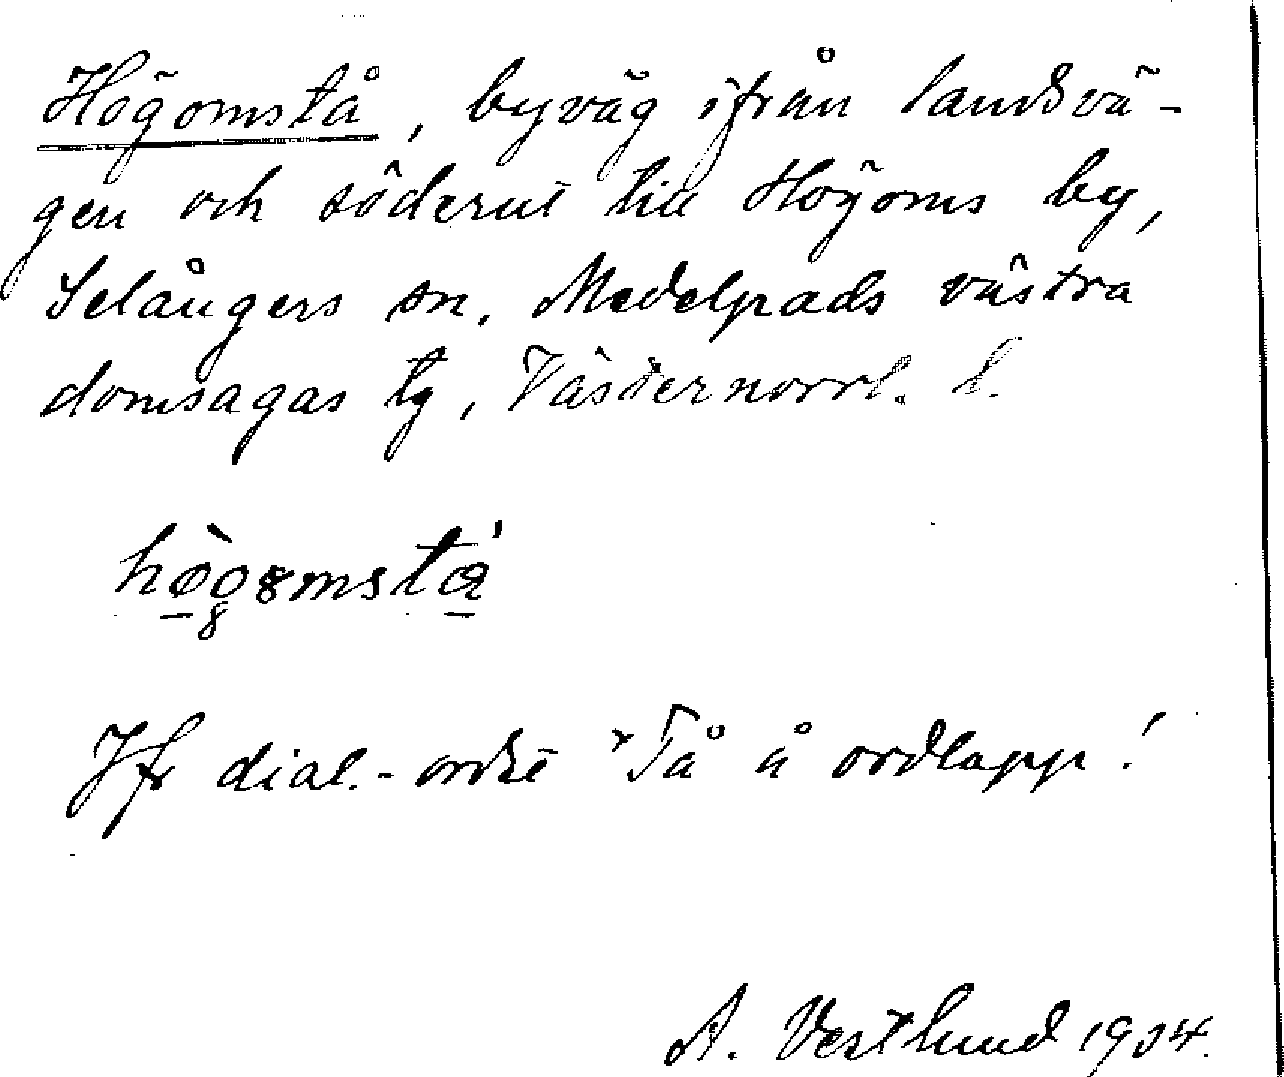 Högomstå, byväg ifrån landsvä-
gen och söderut till Högoms by,
Selångers sn. Medelpads västra
domsagas tg, Västernorrl. l.
hò̱g8mstǻ̱
Jfr dial.-ordet Tå å ordlapp!
A. Vestlund 1934.